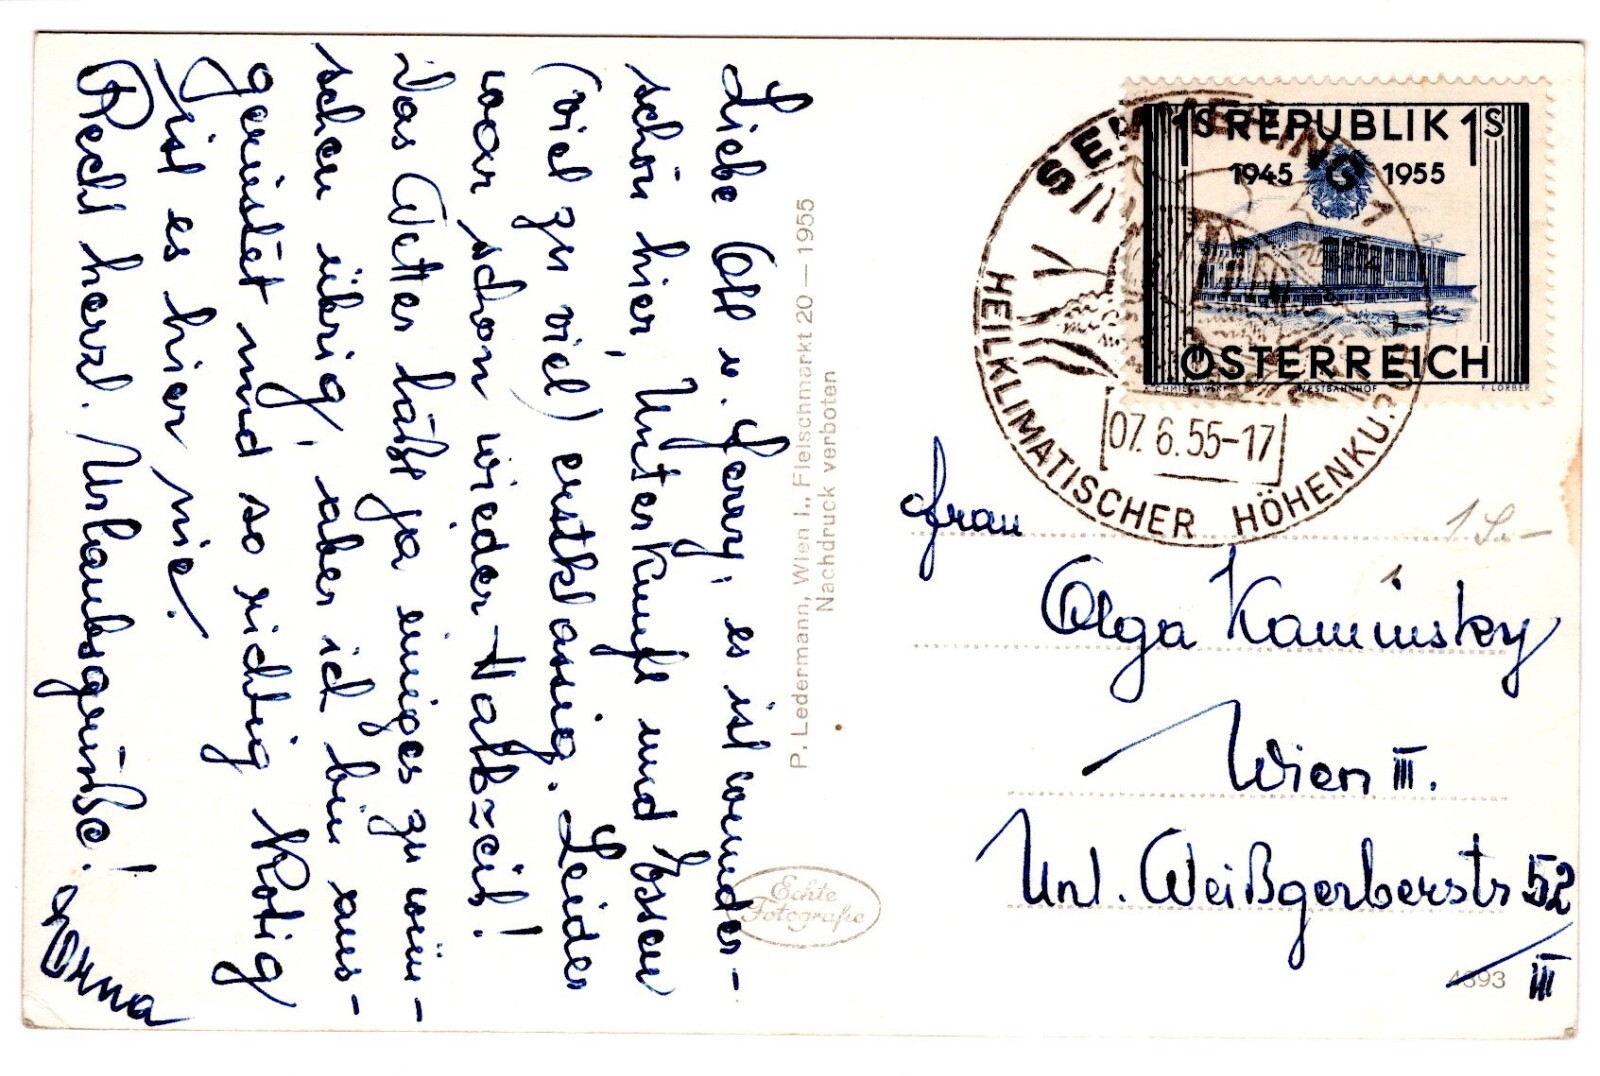 Liebe Oll u. Gerry, es ist wunder-
schön hier, Unterkunft und Essen
(viel zu viel) erstklassig. Leider
war schon wieder Halbzeit!
Das Wetter läßt ja einiges zu wün-
schen übrig, aber ich bin aus-
gerüstet und so richtig kotig
ist es hier nie.
Recht herzl. Urlaubsgrüße!
Erna
P. Ledermann, Wien I., Fleischmarkt 20 — 1955
Nachdruck verboten
Echte
Fotografie
SEMMERING 1
HEILKLIMATISCHER HÖHENKURORT
07. 6. 55-17
1S REPUBLIK 1S
1945 1955
ÖSTERREICH
WESTBAHNHOF
F. LORBER
1 S.-
Frau
Olga Kaminsky
Wien III.
Unt. Weißgerberstr 52
III
4393